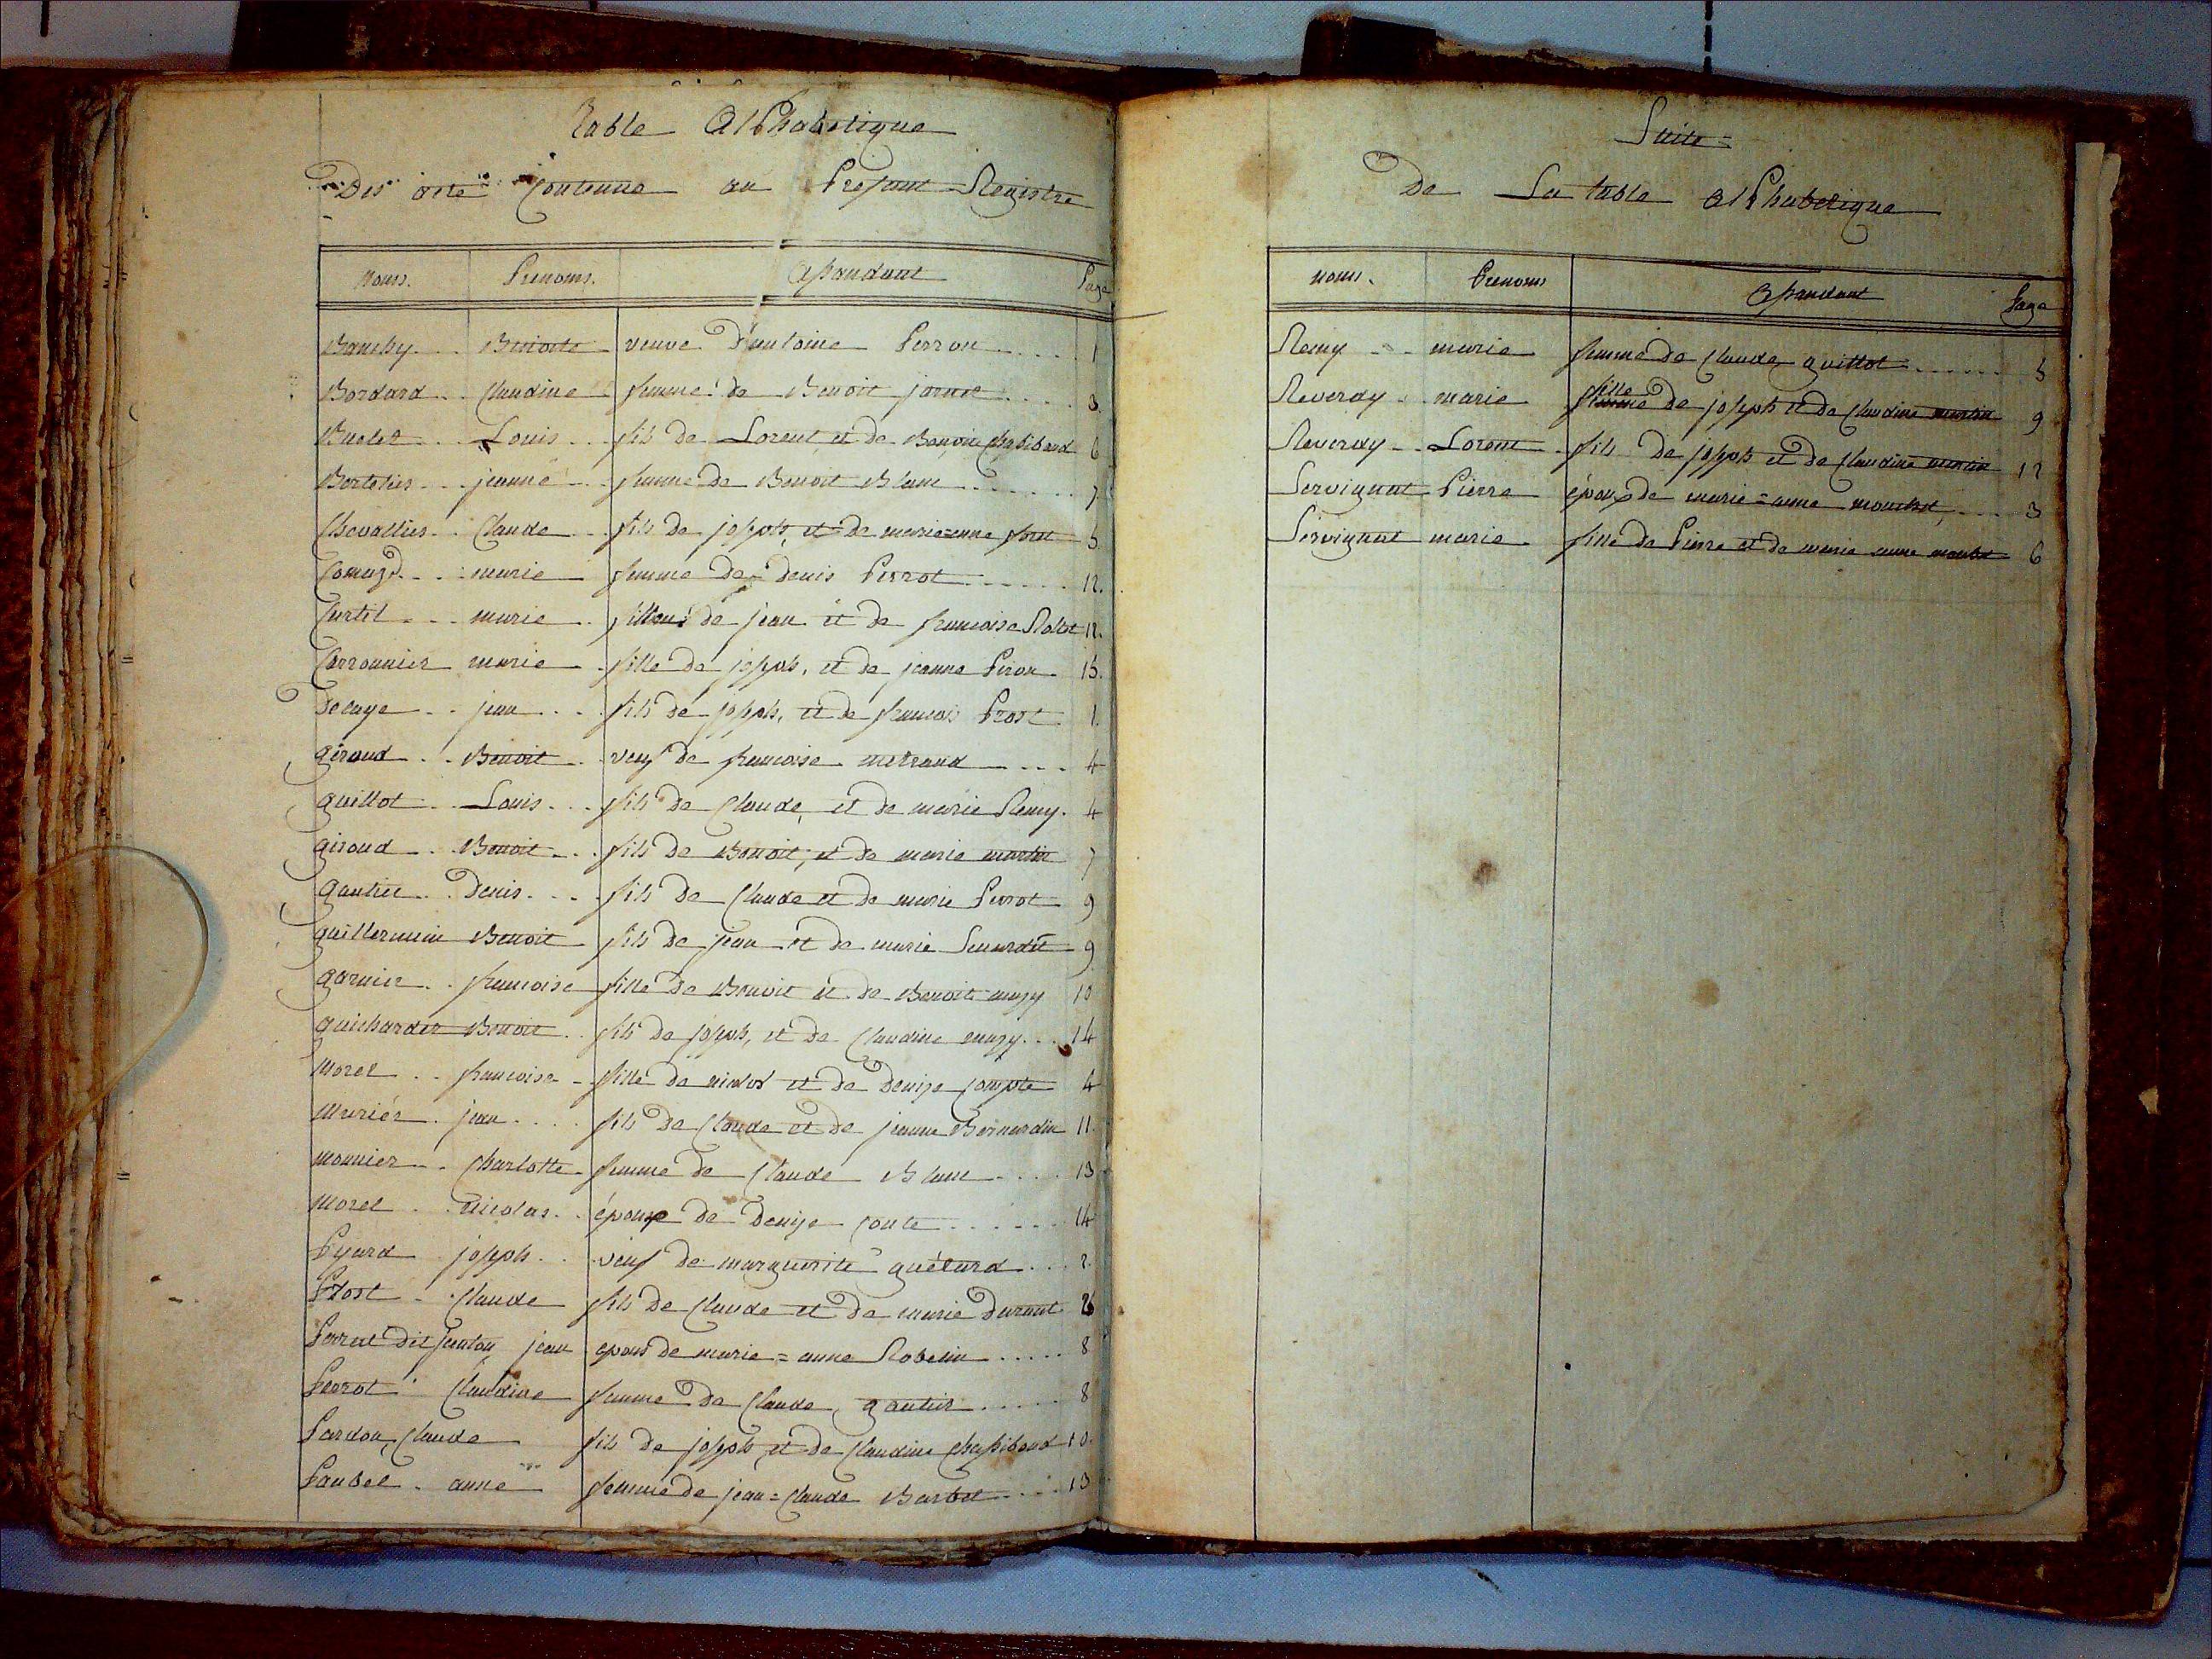 Table Alphabetique
Des acte Contenue au Present Registre
Noms. Prenoms. Apandant Page
Bouchy Benoite veuve D'antoine Perron 1
Bordard Claudine femme de Benoit jornet 3
Buelet Louis fils de Lorent, et de Benoite Chassibaud 6
Bertelier jeanne femme de Benoit Blanc 7
Chevallier Claude fils de joseph, et de marieanne foret 5
marie femme De Denis Perrot 12.
Curtil marie fille de jean et de francoise Rollet 12.
Carronnier marie fille de joseph, et de jeanne Piron 15.
Delaye jean fils de joseph, et de francois Prost 1.
giraud Benoit veuf de francoise metraud 4
guillot Louis fils de Claude, et de marie Remy. 4
giraud Benoit fils de Benoit, et de marie martin 7
gautier Denis fils de Claude et de marie Perrot 9
guillermin Benoit fils de jean et de marie 9
garnier francoise fille de Benoit et de Benoite 10
guichardet Benoit fils de joseph, et de Claudine 14
Morel francoise fille de nicolas et de Denise Compte 4
Murier jean fils de Claude et de jeanne Bernardin 11.
Monnier Charlotte femme de Claude Blanc 13
Morel nicolas époux de Denise Conte 14
Pyard joseph veuf de marguerite guétard 2.
Prost Claude fils de Claude et de marie Durant 26
Perrat dit jean epous de marie=anne Robelin 8
Perrot Claudine femme de Claude gautier 8
Pardon Claude fils de joseph et de Claudine Chassibaud 10.
Paubel anne femme de jean=Claude Barbet 13
Suite=
De La table Alphabetique
Noms. Prenoms Apandant Page
Remy marie femme de Claude guillot 5
Reverdy marie fille de joseph et de Claudine martin 9
Reverdy Lorent fils De joseph et de Claudine martin 12
Servignat Pierre époux de marie=anne mouchet 3
Servignat marie fille de Pierre et de marie anne 6